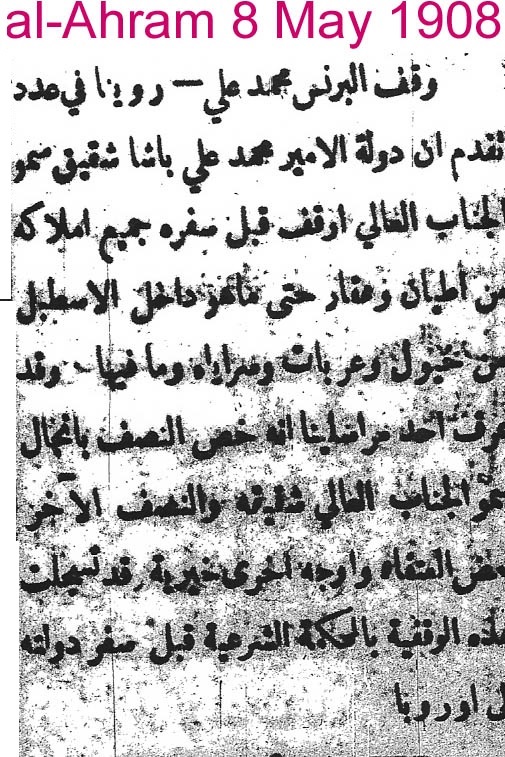 al-Ahram 8 May 1908
وقف البرنس محمد علي — روينا في عدد
تقدم ان دولة الامير محمد علي باشا شقيق سمو
الجناب العالي اوقف قبل سفره جميع املاكه
من اطيان وعقار حتى ما هو داخل الاسطبل
من خيول وعربات وسراياه وما فيها . وقد
عرف احد مراسلينا انه خص النصف بانجال
سمو الجناب العالي شقيقه والنصف الآخر
واوجه اخرى خيرية وقد تسجلت
هذه الوقفية بالمحكمة الشرعية قبل سفر دولته
اوروبا